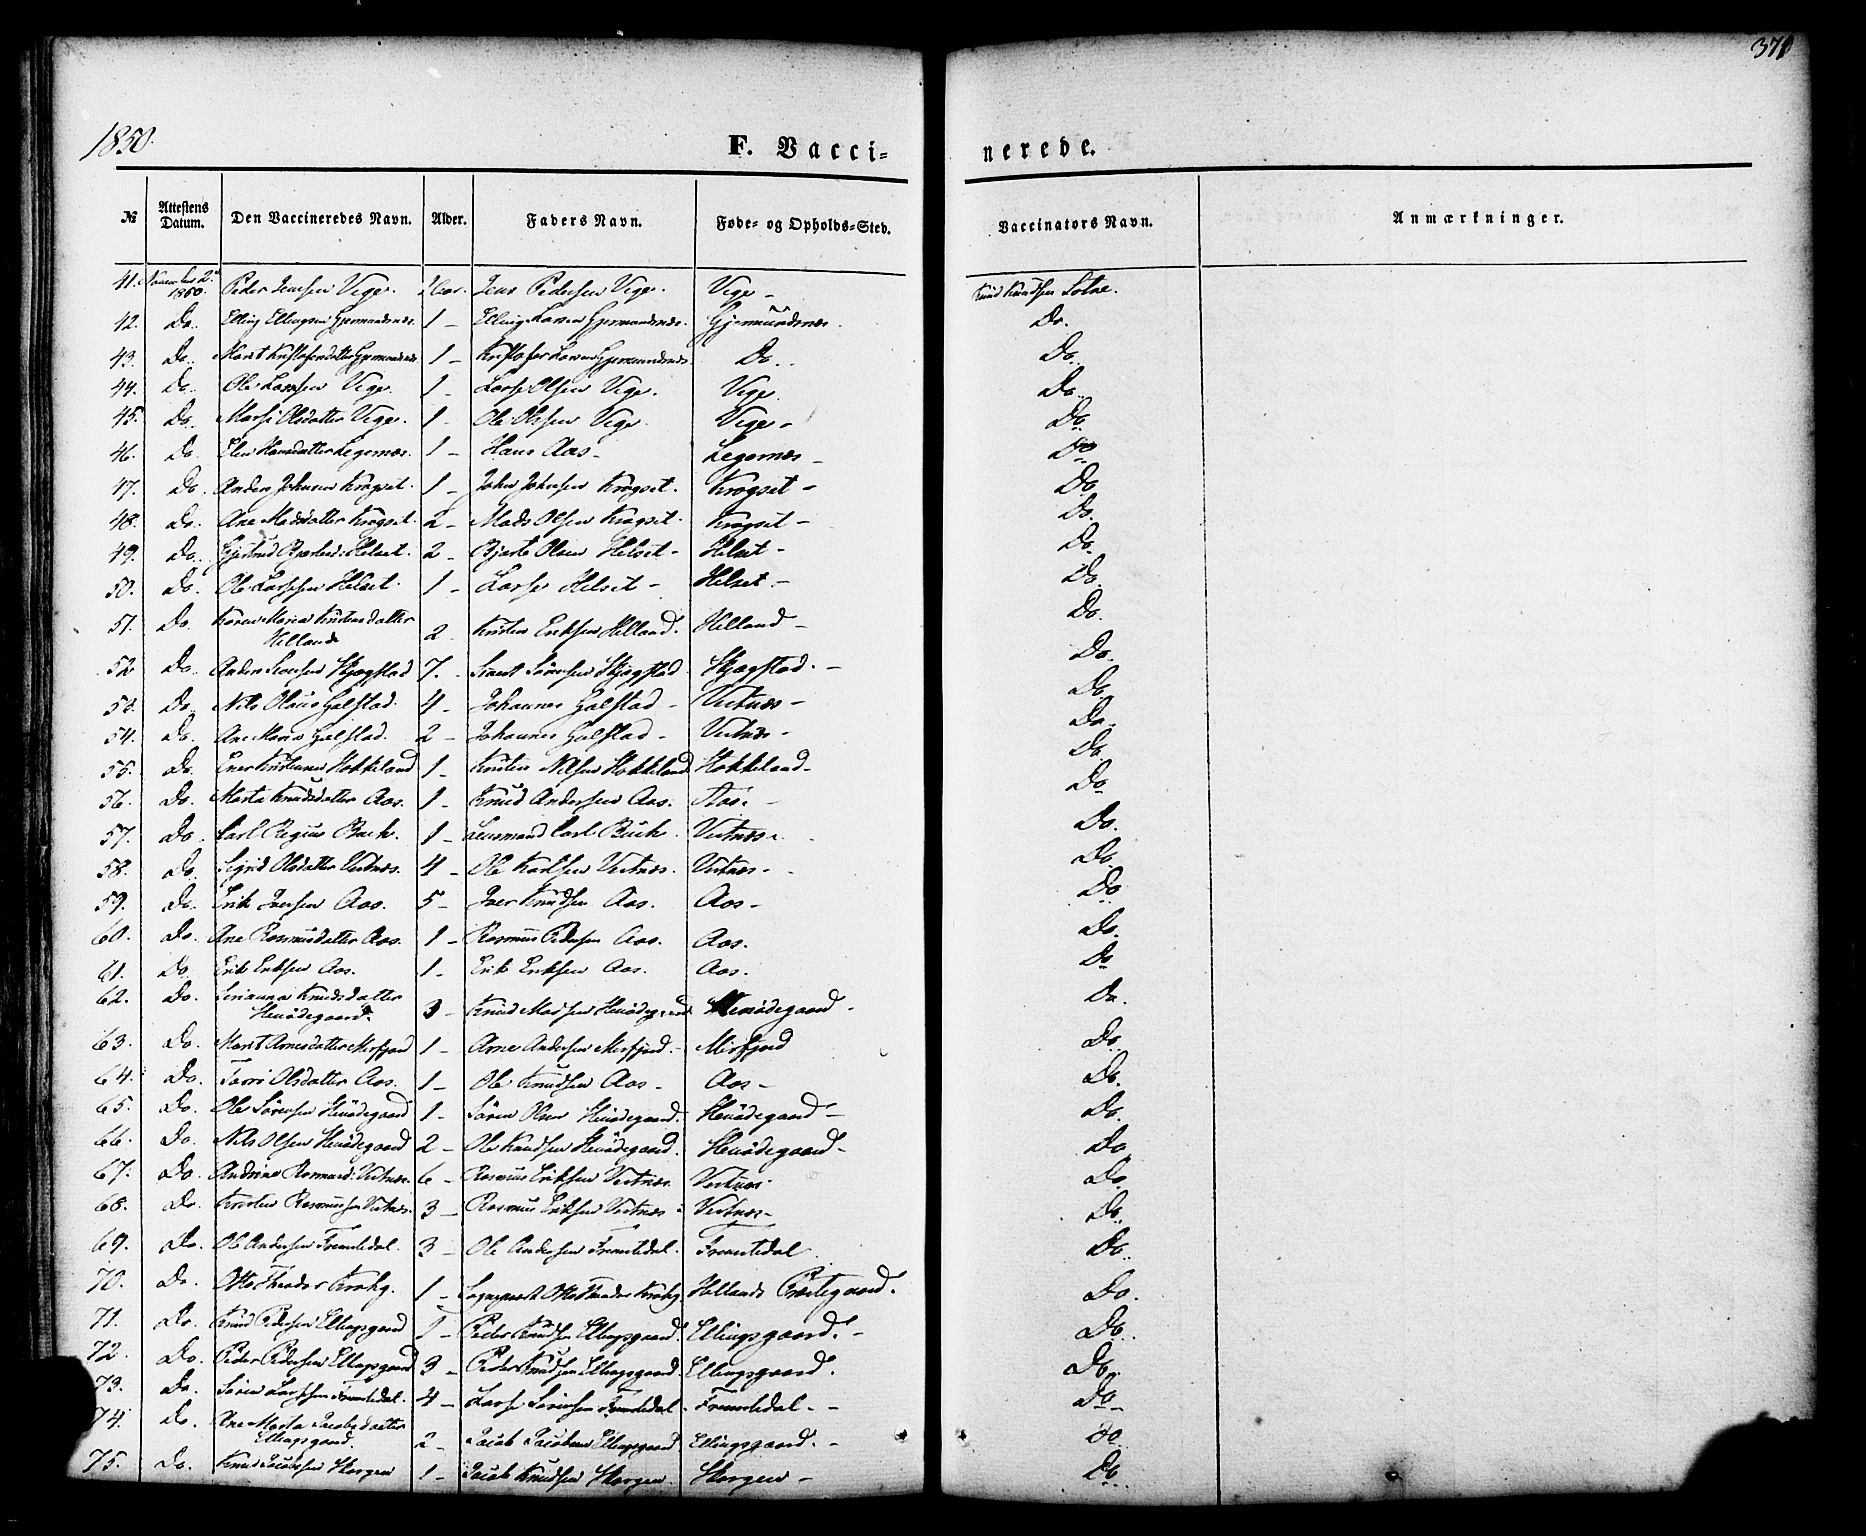 370
1850.
F. Vacci-
nerede.
№ Attestens Datum. Den Vaccineredes Navn. Alder. Faders Navn. Føde- og Opholds-Sted. Vaccinators Navn. Anmærkninger.
41. November 2d 1850. Peder Jensen Vige. 1 Aar. Jens Pedersen Vige. Vige - Knud Knudsen Sølne.
42. Do. Elling Ellingsen Gjermundnæs. 1 - Elling Larsen Gjermundnæs. Gjermundnæs. Do.
43. Do. Marit Kristofersdatter Gjermundnæs 1 - Kristofer Larsen Gjermundnæs Do. Do.
44. Do. Ole Larssen Vige. 1 - Lars Olsen Vige. Vige. Do.
45. Do. Marhi Olsdatter Vige. 1 - Ole Olssen Vige. Vige - Do.
46. Do. Elen Hansdatter Legernæs. 1 - Hans Aas - Legernæs - Do
47. Do. Anders Johnsen Krogset. 1 - John Johnsen Krogset. Krogset - Do.
48. Do. Ane Madsdatter Krogset. 2 - Mads Olsen Krogset. Krogset - Do.
49. Do. Gjertrud Bjerked: Helset. 2 - Bjerke Olsen Helset - Helset - Do.
50. Do. Ole Larssen Helset. 1 - Lars Helset - Helset. - Do.
51. Do. Karen Maria Kristensdatter
Helland 2 - Kristen Eriksen Helland. Helland - Do.
52 Do. Anders Sivertsen Skjegstad 7. - Sivert Sørensen Skjegstad Skjegstad. - Do.
53. Do. Nils Olaus Galstad. 4 - Johannes Galstad - Vestnæs - Do.
54. Do. Ane Maria Galstad. 2 - Johannes Galstad - Vestnæs - Do.
55. Do. Kristianes Hokkeland 1 - Kristen Nilsen Hokkeland Hokkeland - Do.
56. Do. Marta Knudsdatter Aas. 1 - Knud Andersen Aas. Aas. - Do.
57. Do. Carl Regius Buch. 1 - Lensmand Carl Buch. Vestnæs - Do.
58. Do. Sigrid Olsdatter Vestnæs. 4 - Ole Karlsen Vestnæs. Vestnæs - Do.
59. Do. Erik Iversen Aas. 5 - Iver Knudsen Aas. Aas - Do
60. Do. Ane Rasmusdatter Aas. 1 - Rasmus Pedersen Aas. Aas. Do.
61. Do. Erik Eriksen Aas. 1 - Erik Eriksen Aas. Aas. Do
62. Do. Serianna Knudsdatter
Henødegaard. 3 - Knud Madsen Henødegaard Henødegaard - Do.
63. Do. Marit Arnesdatter Misfjord 1 - Arne Andersen Misfjord. - Misfjord Do.
64. Do. Torri Olsdatter Aas. 1 - Ole Knudsen Aas - Aas - Do.
65. Do. Ole Sørensen Henødegaard 1 - Søren Olsen Henødegaard. Henødegaard - Do.
66. Do. Nils Olsen Henødegaard 2 - Ole Knudsen Henødegaard. Henødegaard - Do
67. Do. Andrine Rasmusd: Vestnæs 6 - Rasmus Eriksen Vestnæs. Vestnæs Do.
68. Do. Kristen Rasmussen Vestnæs. 3 - Rasmus Eriksen Vestnæs - Vestnæs - Do.
69. Do. Ole Andersen Fremtedal. 3 - Ole Andersen Fremtedal. Fremtedal Do.
70. Do. Otto Theodor Krohg. 1 - Sognepræst Otto Theodor Krohg. Hellands Præstegaard. Do.
71. Do. Knud Pedersen Ellingsgaard 1 - Peder Knudsen Ellingsgaard. Ellingsgaard. - Do.
72. Do. Peder Pedersen Ellingsgaard 3 - Peder Knudsen Ellingsgaard. Ellingsgaard. Do.
73. Do. Søren Larssen Fremtedal. 4 - Lars Sørensen Fremtedal. Fremtedal. - Do -
74. Do. Ane Marta Jacobsdatter
Ellingsgaard. 2 - Jacob Jacobsen Ellingsgaard Ellingsgaard. - Do
75. Do. Knud Jacobsen Skorgen 1 - Jacob Knudsen Skorgen. Skorgen - Do.